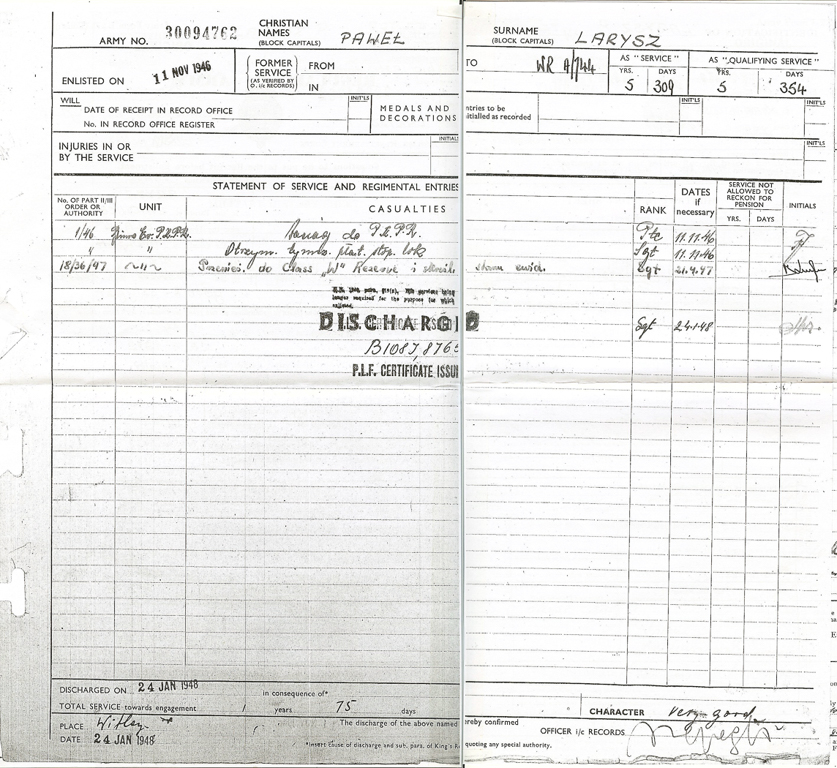 ARMY NO. 30094762 CHRISTIAN NAMES (BLOCK CAPITALS) PAWEŁ SURNAME (BLOCK CAPITALS) LARYSZ
ENLISTED ON 11 NOV 1946 FORMER SERVICE (AS VERIFIED BY O. i/c RECORDS) FROM TO WR A/144 AS "SERVICE" AS "QUALIFYING SERVICE"
IN YRS. DAYS YRS. DAYS
5 309 5 354
WILL INIT'LS MEDALS AND DECORATIONS entries to be initialled as recorded INIT'LS INIT'LS
DATE OF RECEIPT IN RECORD OFFICE
No. IN RECORD OFFICE REGISTER
INJURIES IN OR BY THE SERVICE INITIAL INIT'LS
STATEMENT OF SERVICE AND REGIMENTAL ENTRIES
No. OF PART II/III ORDER OR AUTHORITY UNIT CASUALTIES RANK DATES if necessary SERVICE NOT ALLOWED TO RECKON FOR PENSION YRS. DAYS INITIALS
1/46 do P.K.P.R. Pte 11.11.46
" " Otrzym. tymcz. płat. stop. Sgt 11.11.46
18/36/47 —"— Przenies. do Class „W" Reserve i ewid. Sgt 21.4.47
longer required for the purpose for which
DISCHARGED Sgt 24.1.48
B1087, 876
P.L.F. CERTIFICATE ISSU
DISCHARGED ON 24 JAN 1948 in consequence of*
TOTAL SERVICE towards engagement 1 years 75 days CHARACTER Very good
PLACE Witley The discharge of the above named hereby confirmed
DATE 24 JAN 1948 OFFICER i/c RECORDS
*Insert cause of discharge and sub. para. of King's R quoting any special authority.